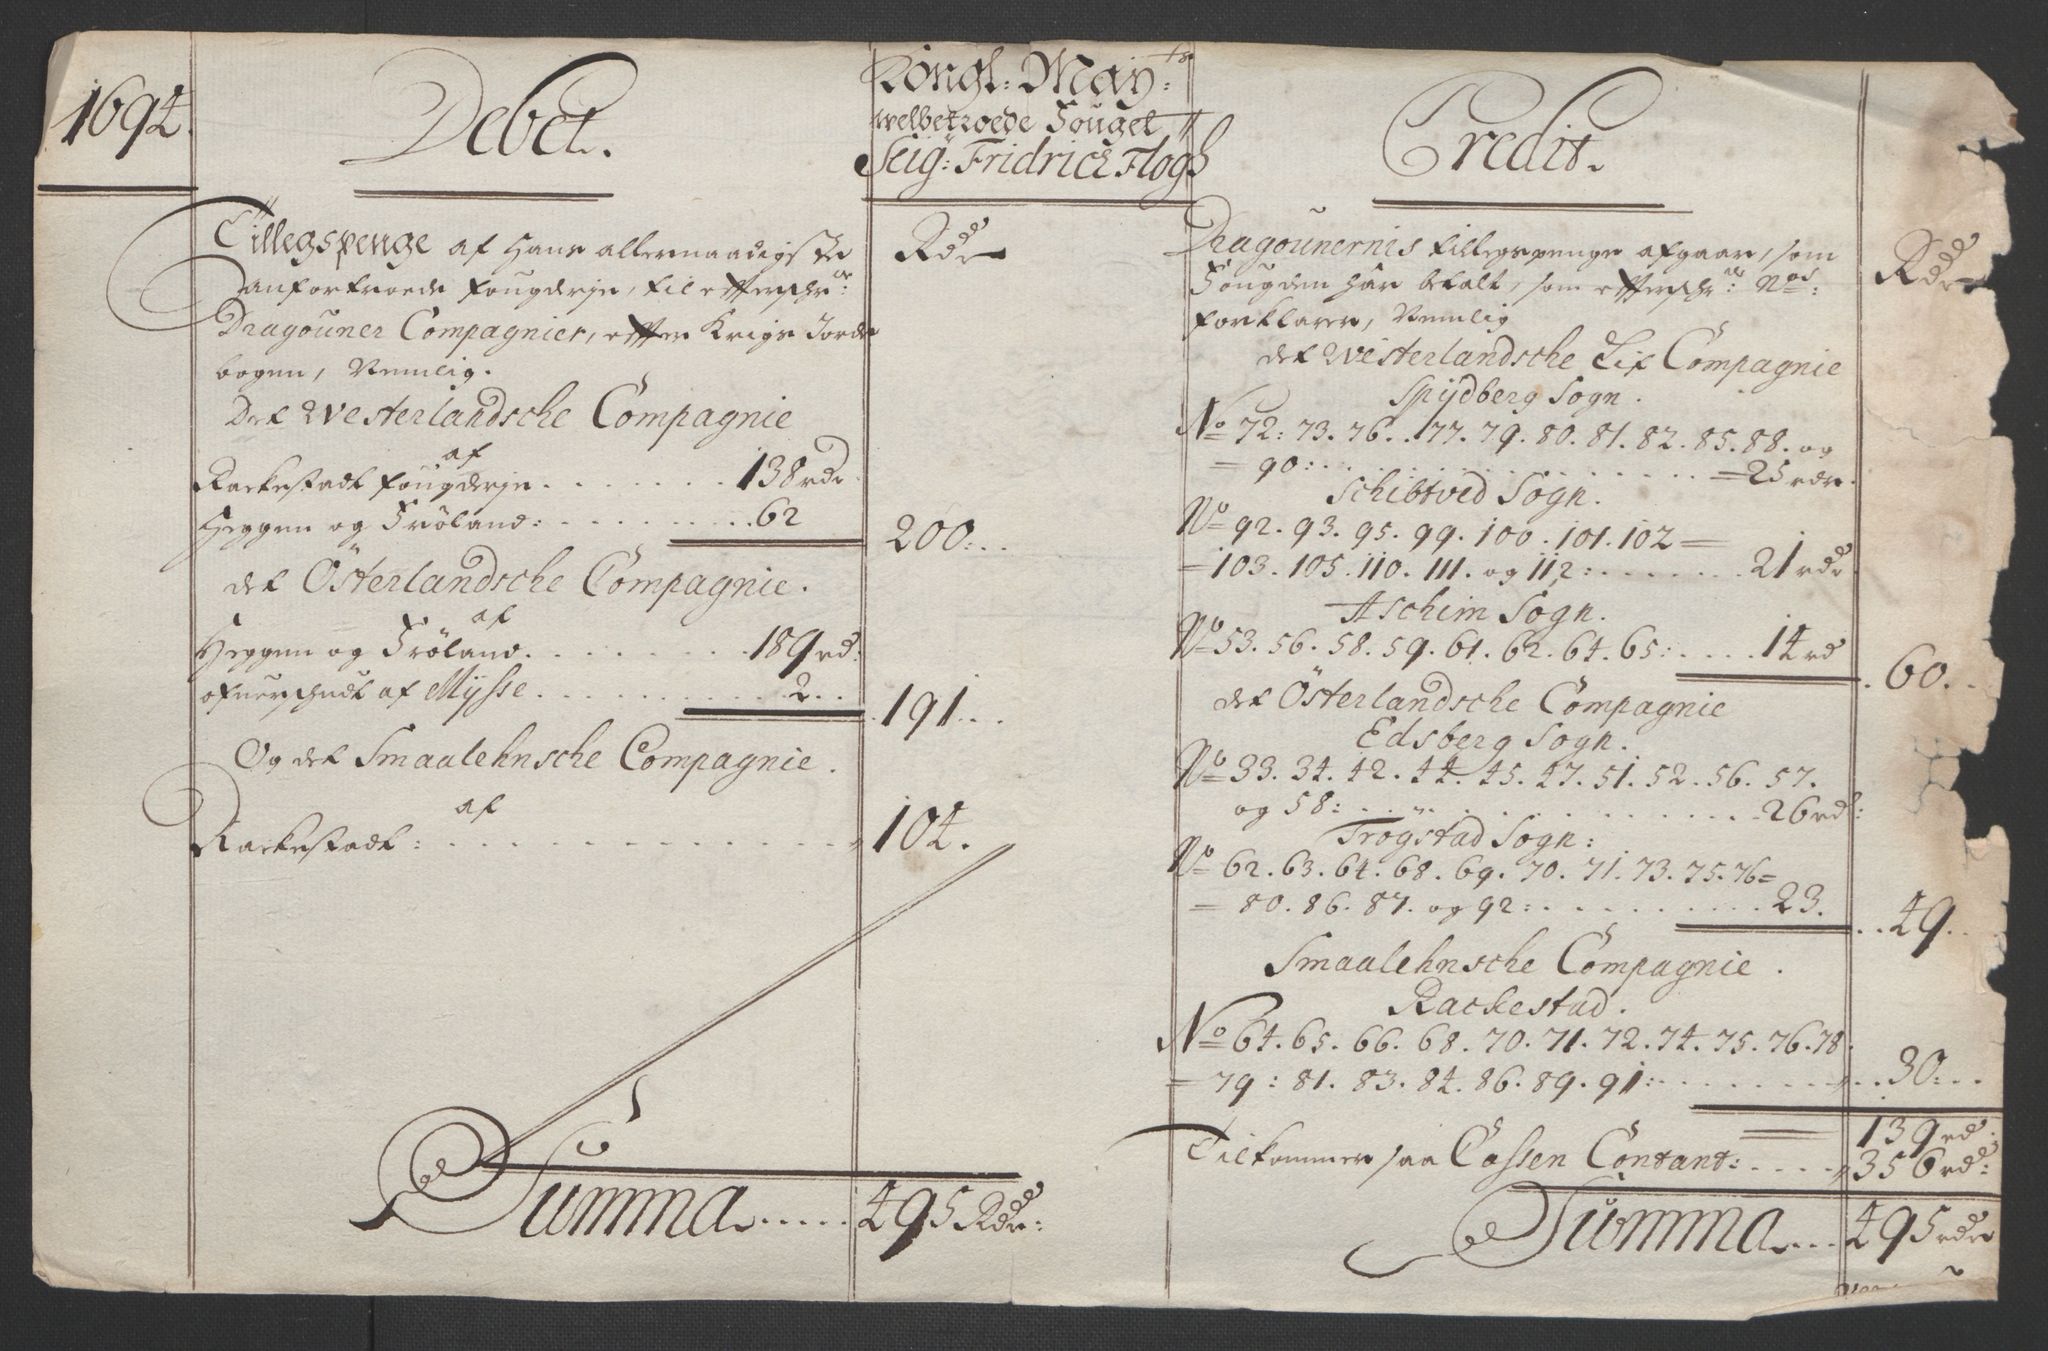 1694.
Debet.
Kongl: May:ts
welbetroede Fouget
Seig: Fridrich Flogh
Credit.
Tillegspenge af Hans allernaadigste
anfortroede fougderje, til effterschr:
Dragouner Compagnier, effter Krigs Jorde
bogen, Nemlig.
Rdr
Det Westerlandsche Compagnie
af
Rackestadt fougderje . . . . . . 138 rdr
Heggen og Fröland: . . . . . . . . 62
200: . .
det Österlandsche Compagnie.
af
Heggen og Fröland. . . . . . . . 189 rd:
ofuerschudt af Mysse . . . . . . . . . 2 . .
191 . . .
Og det Smaalehnsche Compagnie.
af
Rackestadt: . . . . . . . . . . . . 104.
Summa . . . . . 495 Rdr:
Dragounernis tillegspenge afgaar, som
Fougden har betalt, som effterschr: Nos:
forklarer, Nemlig
Rdr
det Westerlandsche Lif Compagnie
Spydberg Sogn.
No 72: 73. 76. . 77. 79. 80. 81. 82. 85. 88. og
= 90: . . . . . . . . . . . . . . . = 25 rdr.
Schibtved Sogn.
No 92. 93. 95. 99. 100. 101. 102 =
= 103. 105. 110. 111. og 112: . . . . . . . 21 rdr
Aschim Sogn.
No 53. 56. 58. 59. 61. 62. 64. 65: . . . . 14 rd
. 60. . .
det Österlandsche Compagnie
Edsberg Sogn.
No 33. 34. 42. 44. 45. 47. 51. 52. 56. 57.
og 58: . . . . . . . . . . . . . . 26 rd:
Trogstad Sogn:
No 62. 63. 64. 68. 69. 70. 71. 73. 75. 76 =
= 80. 86. 87. og 92: . . . . . . . . . . 23.
. . 49 . .
Smaalehnsche Compagnie.
Rackestad.
No 64. 65. 66. 68. 70. 71. 72. 74. 75. 76. 78.
= 79: 81. 83. 84. 86. 89. 91: . . . . . . . . . . 30: . .
139 rd.
Tilkommer saa Cassen Contant: . . . . 356 rd:
Summa . . . . 495 rdr